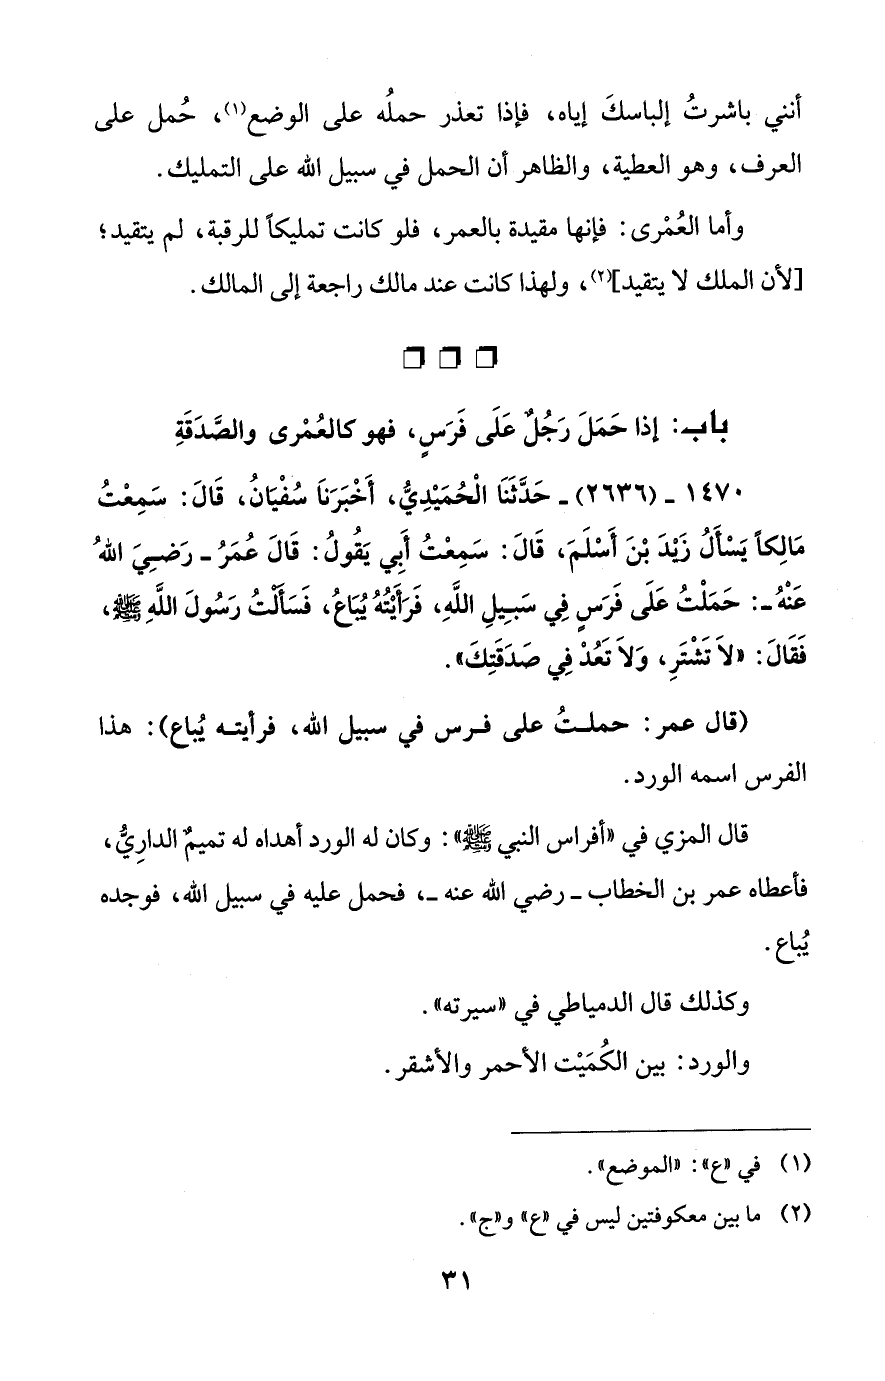 أنني باشرتُ إلباسكَ إياه، فإذا تعذر حملُه على الوضع(١)، حُمل على
العرف، وهو العطية، والظاهر أن الحمل في سبيل الله على التمليك.
وأما العُمْرى: فإنها مقيدة بالعمر، فلو كانت تمليكاً للرقبة، لم يتقيد؛
[لأن الملك لا يتقيد](٢)، ولهذا كانت عند مالك راجعة إلى المالك.
باب: إذا حَمَلَ رَجُلٌ عَلَى فَرَسٍ، فهو كالعُمْرى والصَّدَقَةِ
١٤٧٠ ـ (٢٦٣٦) ـ حَدَّثَنَا الْحُمَيْدِيُّ، أَخْبَرَنَا سُفْيَانُ، قَالَ: سَمِعْتُ
مَالِكاً يَسْأَلُ زَيْدَ بْنَ أَسْلَمَ، قَالَ: سَمِعْتُ أَبِي يَقُولُ: قَالَ عُمَرُ ـ رَضِيَ اللهُ
عَنْهُ ـ: حَمَلْتُ عَلَى فَرَسٍ فِي سَبِيلِ اللَّهِ، فَرَأَيْتُهُ يُبَاعُ، فَسَأَلْتُ رَسُولَ اللَّهِ ﷺ،
فَقَالَ: «لاَ تَشْتَرِ، وَلاَ تَعُدْ فِي صَدَقَتِكَ».
(قال عمر: حملتُ على فرس في سبيل الله، فرأيته يُباع): هذا
الفرس اسمه الورد.
قال المزي في «أفراس النبي ﷺ»: وكان له الورد أهداه له تميمٌ الدارِيُّ،
فأعطاه عمر بن الخطاب ـ رضي الله عنه ـ، فحمل عليه في سبيل الله، فوجده
يُباع.
وكذلك قال الدمياطي في «سيرته».
والورد: بين الكُمَيْت الأحمر والأشقر.
(١) في «ع»: «الموضع».
(٢) ما بين معكوفتين ليس في «ع» و«ج».
٣١